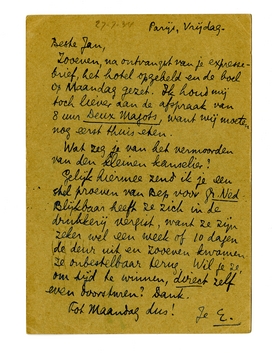 27-7-34
Parijs, Vrijdag.
Beste Jan,
Zooeven, na ontvangst van je expresse-
brief, het hotel opgebeld en de boel
op Maandag gezet. Ik houd mij
toch liever aan de afspraak van
8 uur Deux Magots, want wij moeten
nog eerst thuis eten.
Wat zeg je van het vermoorden
van den kleinen kanselier?
Gelijk hiermee zend ik je een
stel proeven van Bep voor Gr. Ned.
Blijkbaar heeft ze zich in de
drukkerij vergist, want ze zijn
zeker wel een week of 10 dagen
de deur uit en zooeven kwamen
ze onbestelbaar terug. Wil je ze,
om tijd te winnen, direct zelf
even doorsturen? Dank.
Tot Maandag dus! Je E.